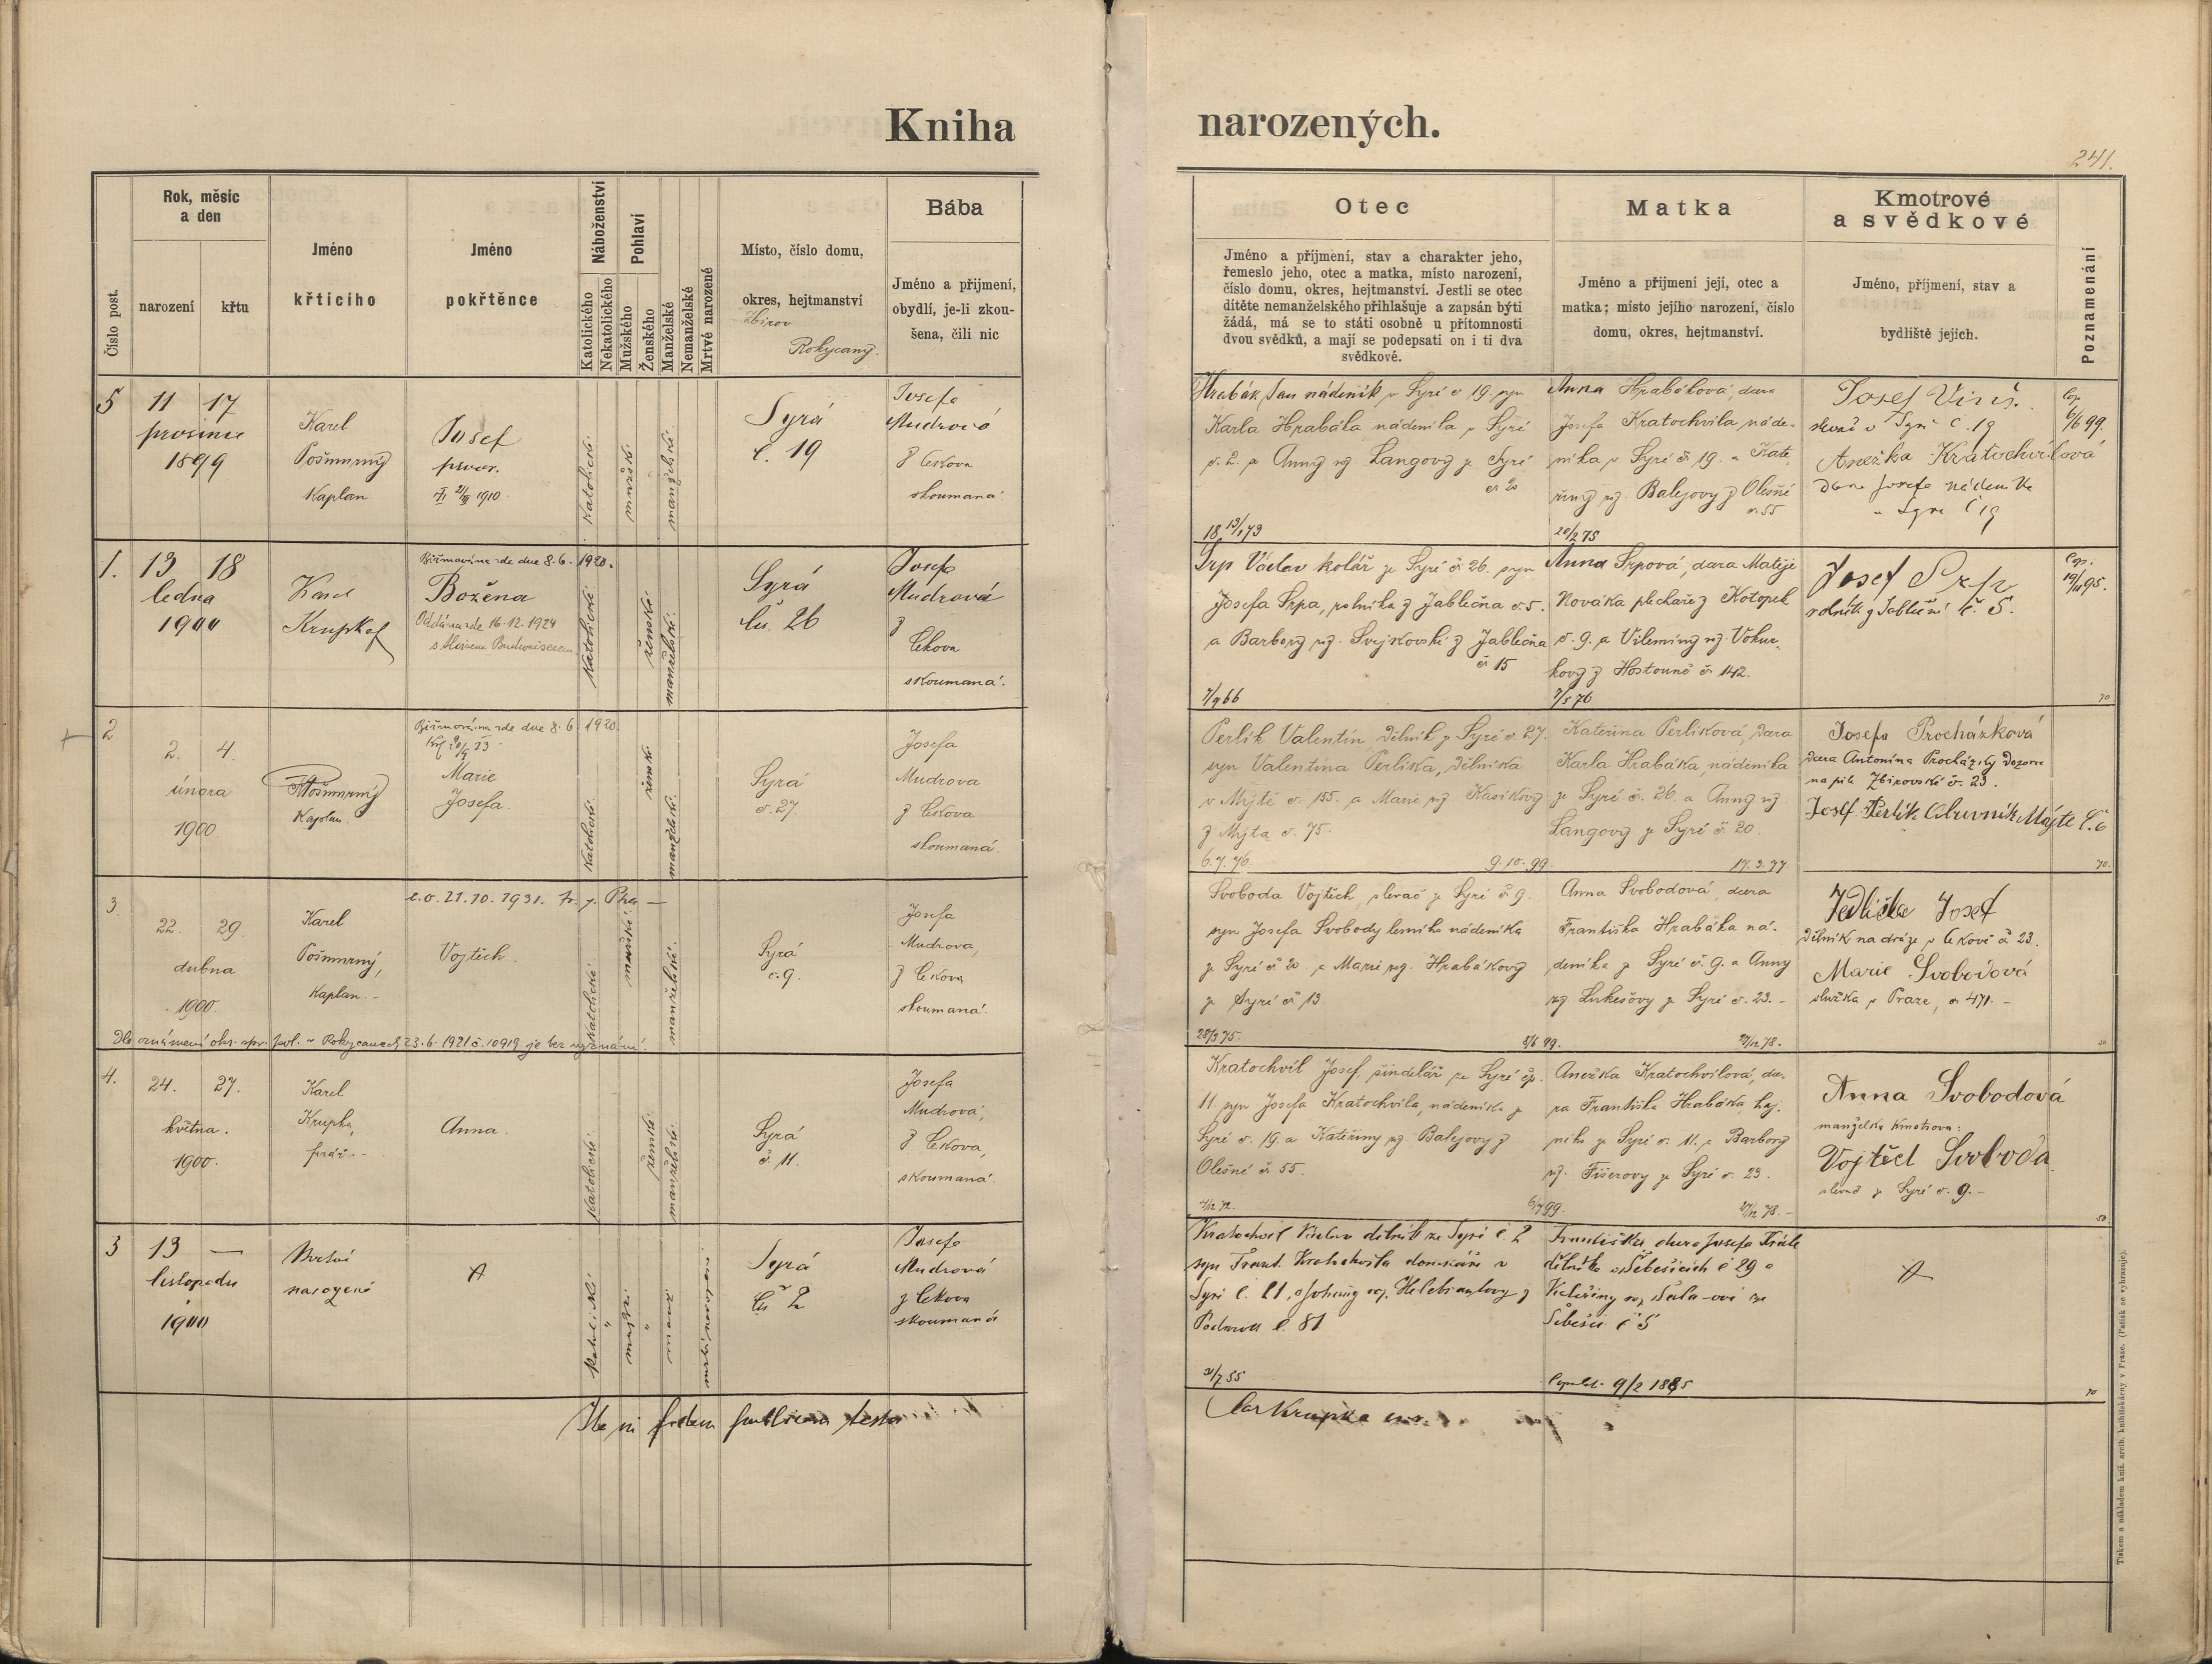 Kniha narozených.
241.
Číslo post.
Rok, měsíc
a den
narození
křtu
Jméno
křticího
Jméno
pokřtěnce
Náboženství
Katolického
Nekatolického
Pohlaví
Mužského
Ženského
Manželské
Nemanželské
Mrtvě narozené
Místo, číslo domu,
okres, hejtmanství
Zbirov
Rokycany.
Bába
Jméno a přijmení,
obydlí, je-li zkou-
šena, čili nic
Otec
Jméno a příjmení, stav a charakter jeho,
řemeslo jeho, otec a matka, místo narození,
číslo domu, okres, hejtmanství. Jestli se otec
dítěte nemanželského přihlašuje a zapsán býti
žádá, má se to státi osobně u přítomnosti
dvou svědků, a mají se podepsati on i ti dva
svědkové.
Matka
Jméno a příjmení její, otec a
matka; místo jejího narození, číslo
domu, okres, hejtmanství.
Kmotrové
a svědkové
Jméno, příjmení, stav a
bydliště jejich.
Poznamenání
5
11 17
prosince
1899
Karel
Pošmurný
Kaplan
Josef
1910
katolické
mužské
manželské
Syrá
č. 19
Josefa
Mudrová
z Čekova
skoumaná.
Hrabák Jan nádeník v Syré č 19. syn
Karla Hrabáka nádeníka v Syré
č. 2. a Anny roz. Langovy ze Syré
č. 20
18 13/1 73
Anna Hrabáková, dcera
Josefa Kratochvíla náde-
níka v Syré č. 19. a Kate
řiny roz. Balejovy z Olešné
č. 55
20/2 75
Josef
v Syré č. 19
Anežka Kratochvílová
dcera Josefa nádeníka
Syré č 19
Cop.
6/6 99.
1.
13 18
ledna
1900
Karel
Krupka
Biřmována zde dne 8. 6. 1920.
Božena
Oddána zde 16. 12. 1924
s Aloisem Budweiserem
katolické
ženské
manželské
Syrá
čís. 26
Josefa
Mudrová
z
Čekova
skoumaná.
Srp Václav kolář ze Syré č. 26. syn
Josefa Srpa, rolníka z Jablečna č. 5.
a Barbory roz. Svejkovské z Jablečna
č. 15
7/9 66
Anna Srpová, dcera Matěje
Nováka plechaře z Kotopek
č. 9. a Vilemíny roz. Vokur-
kovy z Hostouně č. 142.
7/5 76
Josef Srp
rolník z Jablečna č. 5.
Cop.
95.
70
2
2. 4.
února
1900.
Pošmurný
Kaplan.
Biřmována zde dne 8. 6. 1920.
Marie
Josefa.
katolické
ženské
manželské
Syrá
č. 27.
Josefa
Mudrova
z Čekova
skoumaná.
Perlík Valentin, dělník ze Syré č. 27.
syn Valentina Perlíka, dělníka
v Mýtě č. 155. a Marie roz. Kasíkovy
z Mýta č. 75.
6. 7. 76. 9. 10. 99.
Kateřina Perlíková, dcera
Karla Hrabáka, nádeníka
ze Syré č. 26. a Anny roz.
Langovy ze Syré č. 20.
17. 3. 77
Josefa Procházková
dcera Antonína Procházky dozorce
na pile Zbirovské č. 23.
Josef Perlík
70.
3.
22. 29.
dubna
1900.
Karel
Pošmurný,
Kaplan.
21. 10. 1931.
Vojtěch.
katolické
mužské
manželské
Syrá
č. 9.
Josefa
Mudrova,
z Čekova
skoumaná.
Dle oznámení okr. spr. pol. v Rokycanech 23. 6. 1921 č. 10919 je bez vyznání.
Svoboda Vojtěch, slevač ze Syré č. 9.
syn Josefa Svobody lesního nádeníka
ze Syré č. 20 a Marie roz. Hrabákovy
ze Syré č. 13.
28/3 75.
Anna Svobodová, dcera
Františka Hrabáka ná-
deníka ze Syré č. 9. a Anny
roz. Lukešovy ze Syré č. 23.
78.
Jedlička Josef
dělník na dráze v Čekově č. 23.
Marie Svobodová
služka v Praze, č. 471.
4.
24. 27.
května.
1900.
Karel
Krupka,
farář.
Anna.
katolické
ženské
manželské
Syrá
č. 11.
Josefa
Mudrová,
z Čekova,
skoumaná.
Kratochvíl Josef, šindelář ze Syré čp.
11. syn Josefa Kratochvíla, nádeníka ze
Syré č. 19. a Kateřiny roz. Balejovy z
Olešné č. 55.
Anežka Kratochvílová, dce-
ra Františka Hrabáka, haj-
ného ze Syré č. 11. a Barbory
roz. Fišerovy ze Syré č. 23.
Anna Svobodová
manželka kmotrova:
Vojtěch Svoboda
slevač ze Syré č. 9.
3
13 —
listopadu
1900
Mrtvě
narozené
katolické
mužské
mrtvě narozené
Syrá
čís 2
Josefa
Mudrová
z Čekova
skoumaná
Kratochvíl Václav dělník ze Syré č 2
syn Frant. Kratochvíla domkáře v
Syré č. 21, a
č. 81
Františka dcera Josefa Krále
dělníka v Sebešicích č 29 a
Kateřiny roz.
č 5
Copulati 9/2 1885
70
fidem publicam
Car Krupka
Tiskem a nákladem kníž. arcib. knihtiskárny v Praze. (Patisk se vyhrazuje).